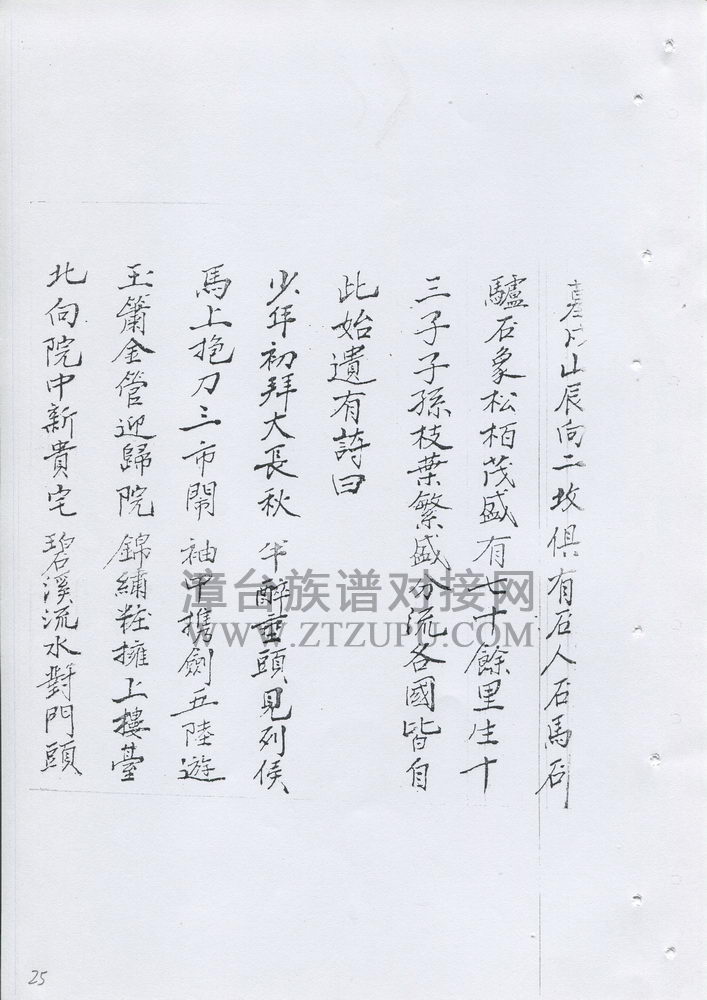 墓戌山辰向二坟俱有石人石馬石
驢石象松栢茂盛有七十餘里生十
三子子孫枝葉繁盛分流各國皆自
此始遺有詩曰
少年初拜大長秋 半醉垂頭見列侯
馬上抱刀三市鬧 袖中携劍五陸遊
玉簫金管迎歸院 錦繡粧擁上樓臺
北向院中新貴宅 碧溪流水對門頭
漳台族谱对接网
WWW.ZTZUPU.COM
25